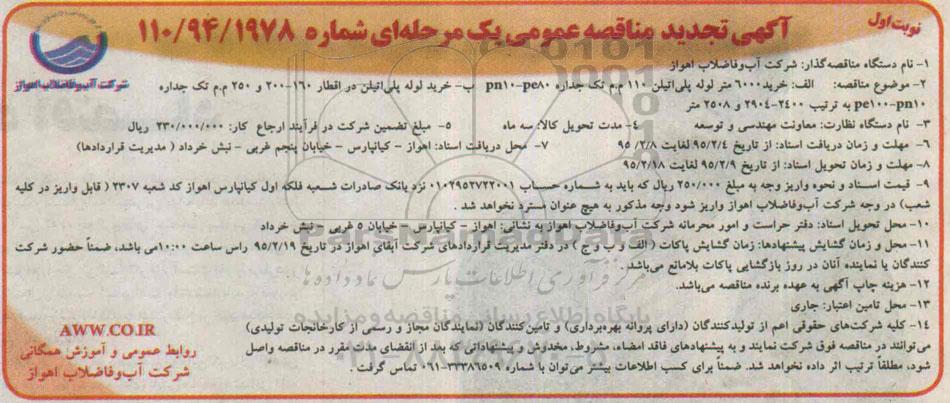 نوبت اول
آگهی تجدید مناقصه عمومی یک مرحله‌ای شماره ۱۱۰/۹۴/۱۹۷۸
شرکت آب‌وفاضلاب اهواز
۱- نام دستگاه مناقصه‌گذار: شرکت آب‌وفاضلاب اهواز
۲- موضوع مناقصه: الف: خرید ۶۰۰۰ متر لوله پلی‌اتیلن ۱۱۰ م.م تک جداره pn۱۰-pe۸۰ ب- خرید لوله پلی‌اتیلن در اقطار ۱۶۰-۲۰۰ و ۲۵۰ م.م تک جداره
pe۱۰۰-pn۱۰ به ترتیب ۲۴۰۰-۲۹۰۴ و ۲۵۰۸ متر
۳- نام دستگاه نظارت: معاونت مهندسی و توسعه ۴- مدت تحویل کالا: سه ماه ۵- مبلغ تضمین شرکت در فرآیند ارجاع کار: ۲۳۰/۰۰۰/۰۰۰ ریال
۶- مهلت و زمان دریافت اسناد: از تاریخ ۹۵/۲/۴ لغایت ۹۵/۲/۸ ۷- محل دریافت اسناد: اهواز - کیانپارس - خیابان پنجم غربی - نبش خرداد ( مدیریت قراردادها)
۸- مهلت و زمان تحویل اسناد: از تاریخ ۹۵/۲/۹ لغایت ۹۵/۲/۱۸
۹- قیمت اسناد و نحوه واریز وجه به مبلغ ۲۵۰/۰۰۰ ریال که باید به شماره حساب ۰۱۰۲۹۵۲۷۲۲۰۰۱ نزد بانک صادرات شعبه فلکه اول کیانپارس اهواز کد شعبه ۲۳۰۷ ( قابل واریز در کلیه
شعب) در وجه شرکت آب‌وفاضلاب اهواز واریز شود وجه مذکور به هیچ عنوان مسترد نخواهد شد .
۱۰- محل تحویل اسناد: دفتر حراست و امور محرمانه شرکت آب‌وفاضلاب اهواز به نشانی: اهواز - کیانپارس - خیابان ۵ غربی - نبش خرداد
۱۱- محل و زمان گشایش پیشنهادها: زمان گشایش پاکات ( الف و ب و ج ) در دفتر مدیریت قراردادهای شرکت آبفای اهواز در تاریخ ۹۵/۲/۱۹ راس ساعت ۱۰:۰۰ می باشد، ضمناً حضور شرکت
کنندگان یا نماینده آنان در روز بازگشایی پاکات بلامانع می‌باشد.
۱۲- هزینه چاپ آگهی به عهده برنده مناقصه می‌باشد.
۱۳- محل تامین اعتبار: جاری
۱۴- کلیه شرکت‌های حقوقی اعم از تولیدکنندگان (دارای پروانه بهره‌برداری) و تامین‌کنندگان (نمایندگان مجاز و رسمی از کارخانجات تولیدی)
می‌توانند در مناقصه فوق شرکت نمایند و به پیشنهادهای فاقد امضاء، مشروط، مخدوش و پیشنهاداتی که بعد از انقضای مدت مقرر در مناقصه واصل
شود، مطلقاً ترتیب اثر داده نخواهد شد. ضمناً برای کسب اطلاعات بیشتر می‌توان با شماره ۳۳۳۸۶۵۰۹-۰۶۱ تماس گرفت .
AWW.CO.IR
روابط عمومی و آموزش همگانی
شرکت آب‌وفاضلاب اهواز